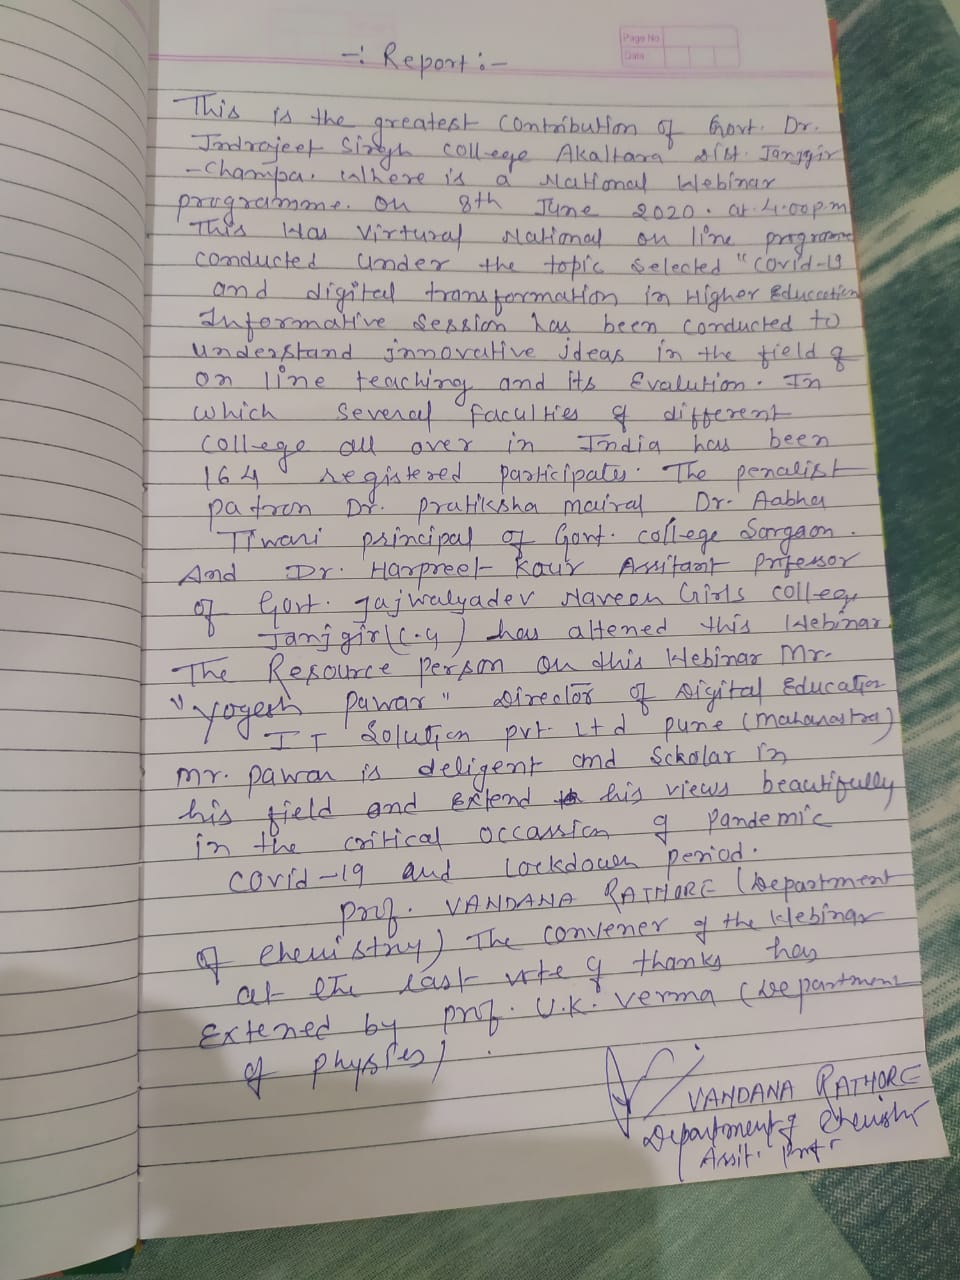 Page No
Date
-: Report :-
This is the greatest contribution of Govt. Dr.
Indrajeet Singh college Akaltara Dist. Janjgir
-Champa. Where is a National Webinar
programme. on 8th June 2020. at 4.00pm
This Has Virtural National on line programe
conducted under the topic selected "Covid-19
and digital transformation in Higher Education
Informative Session has been conducted to
understand innovative ideas in the field of
on line teaching and its Evalution. In
which several faculties of different
college all over in India has been
164 registered participates. The penalist
patron Dr. Pratiksha mairal Dr. Aabha
Tiwari principal of Govt. college Sargaon.
And Dr. Harpreet Kour Assitant Professor
of Govt. Jajwalyadev Naveen Girls college
Janjgir (C.G) has altened this Webinar.
The Resource person on this Webinar Mr.
"Yogesh Pawar" Director of Digital Education
IT Solution pvt. Ltd pune (Maharastra)
Mr. pawar is deligent and Scholar in
his field and Extend his views beautifully
in the critical occassion of pandemic
covid-19 and Lockdown period.
Prof. VANDANA RATHORE (Department
of Chemistry) The convener of the Webinar
at the last vote of thanks has
Extened by prof. U.K. Verma (Department
of physics).
VANDANA RATHORE
Department of Chemistr
Assit. Prof